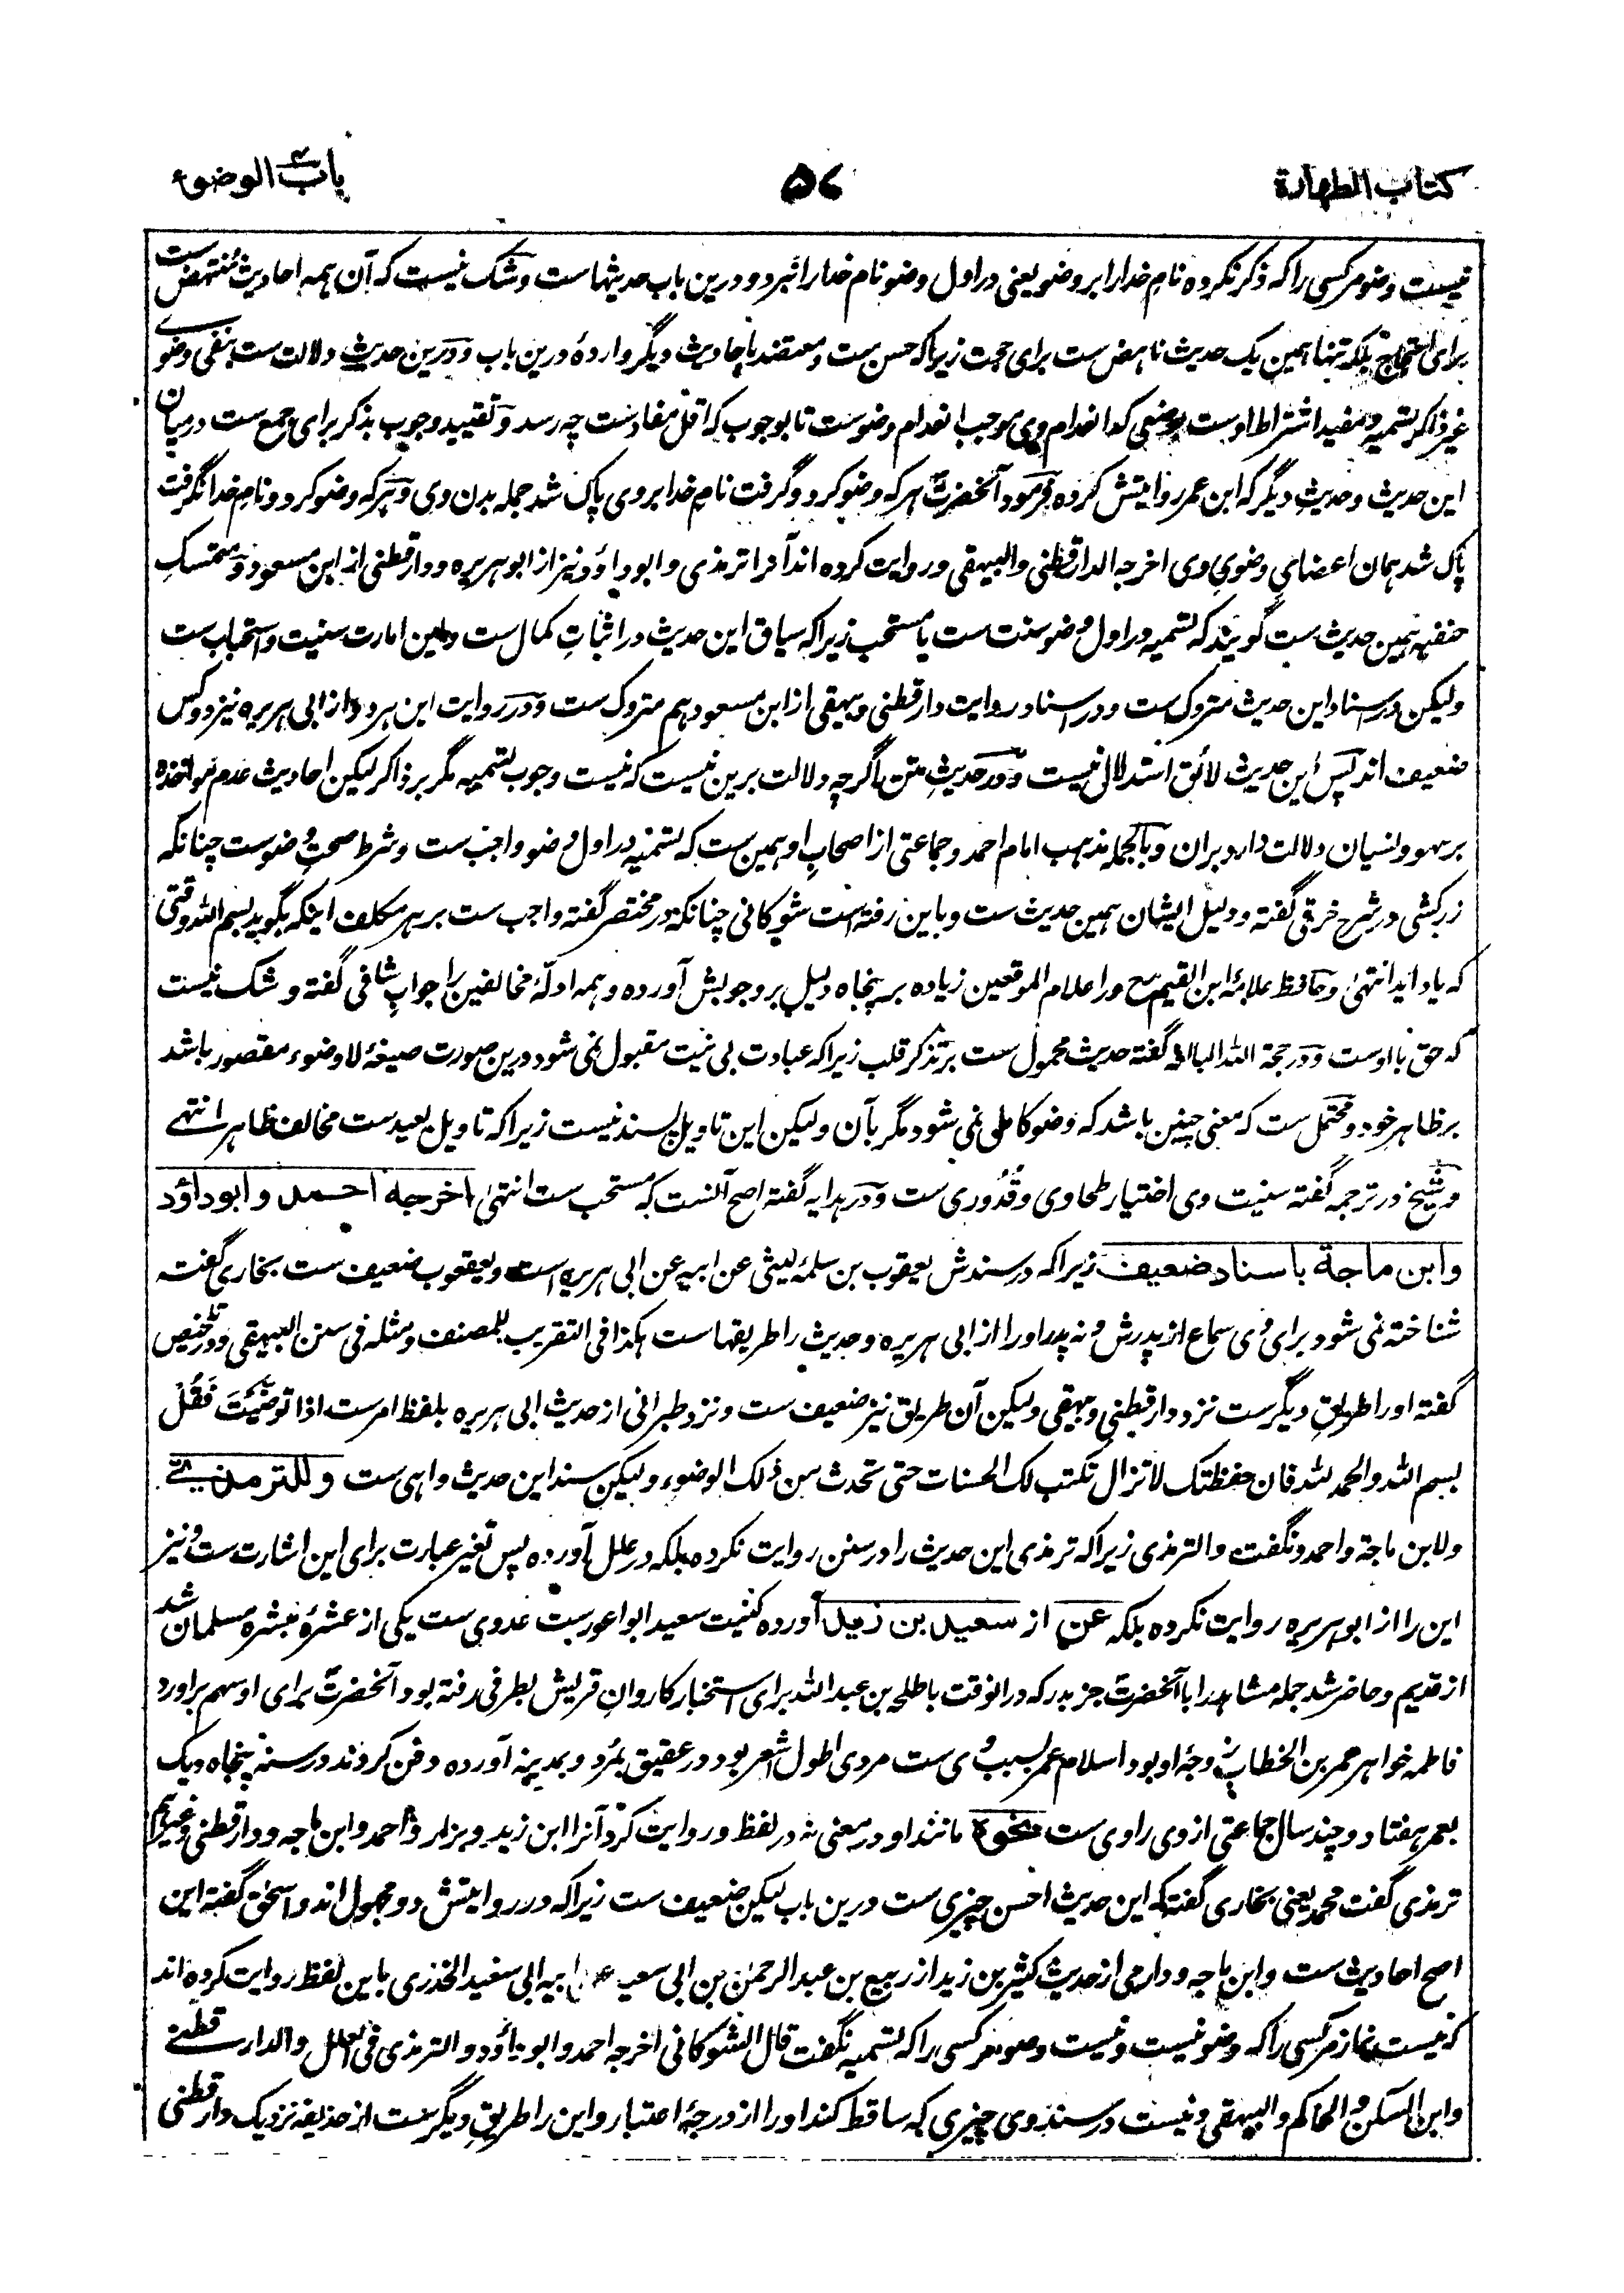 کتاب الطهارة
۵۷
باب الوضوء
نیست وضو مر کسی را که ذکر نکرده نام خدا را بر وضو یعنی در اول وضو نام خدا را نبرد و درین باب حدیثهاست و شک نیست که آن همه احادیث منتهض ست
برای احتجاج بلکه تنها همین یک حدیث ناهض ست برای حجت زیرا که حسن ست و معتضد باحادیث دیگر واردهٔ درین باب و درین حدیث دلالت ست بنفی وضوے
غیر ذاکر تسمیه و مفید اشتراط اوست بوضعی که انعدام وی موجب انعدام وضوست تا بوجوب که اقل مفادست چه رسد و تقیید وجوب بذکر برای جمع ست درمیان
این حدیث و حدیث دیگر که ابن عمر روایتش کرده فرمود آنحضرت هر که وضو کرد و گرفت نام خدا بر وی پاک شد جمله بدن وی و هر که وضو کرد و نام خدا نگرفت
پاک شد همان اعضای وضوی وی اخرجه الدارقطنی والبیهقی و روایت کرده اند آنرا ترمذی و ابو داؤد نیز از ابو هریره و دارقطنی از ابن مسعود و متمسک
حنفیه همین حدیث ست گویند که تسمیه در اول وضو سنت ست یا مستحب زیرا که سیاق این حدیث در اثبات کمال ست و این امارت سنیت و استحباب ست
ولیکن در اسناد این حدیث متروک ست و در اسناد روایت دارقطنی و بیهقی از ابن مسعود هم متروک ست و در روایت این هر دو از ابی هریره نیز دو کس
ضعیف اند پس این حدیث لائق استدلال نیست و در حدیث متن اگرچه دلالت برین نیست که نیست وجوب تسمیه مگر بر ذاکر لیکن احادیث عدم مؤاخذه
بر سهو و نسیان دلالت دارد بران و بالجمله مذهب امام احمد و جماعتی از اصحاب او همین ست که تسمیه در اول وضو واجب ست و شرط صحت وضوست چنانکه
زرکشی در شرح خرقی گفته و دلیل ایشان همین حدیث ست و باین رفته است شوکانی چنانکه در مختصر گفته واجب ست بر هر مکلف اینکه بگوید بسم الله وقتی
که یاد آید انتهیٰ و حافظ علامه ابن القیم رح در اعلام الموقعین زیاده بر پنجاه دلیل بر وجوبش آورده و همه ادلهٔ مخالفین را جواب شافی گفته و شک نیست
که حق با اوست و در حجة الله البالغه گفته حدیث محمول ست بر تذکر قلب زیرا که عبادت بی نیت مقبول نمی شود درین صورت صیغهٔ لا وضوء مقصور باشد
بر ظاهر خود و محتمل ست که معنی چنین باشد که وضو کامل نمی شود مگر بآن ولیکن این تاویل پسند نیست زیرا که تاویل بعیدست مخالف ظاهر انتہے
و شیخ در ترجمه گفته سنیت وی اختیار طحاوی و قدوری ست و در هدایه گفته اصح آنست که مستحب ست انتهیٰ اخرجه احمد وابو داؤد
وابن ماجة باسناد ضعیف زیرا که در سندش یعقوب بن سلمهٔ لیثی عن ابیه عن ابی هریره است و یعقوب ضعیف ست بخاری گفته
شناخته نمی شود برای وی سماع از پدرش و نه پدر او را از ابی هریره و حدیث را طریقهاست هکذا فی التقریب للمصنف و مثله فی سنن البیهقی و در تلخیص
گفته او را طریق دیگرست نزد دارقطنی و بیهقی ولیکن آن طریق نیز ضعیف ست و نزد طبرانی از حدیث ابی هریره بلفظ امرست اذا توضّیتَ فَقُل
بسم الله والحمد لله فان حفظتک لا تزال تکتب لک الحسنات حتی تحدث من ذلک الوضوء ولیکن سند این حدیث واهی ست وللترمذی
ولابن ماجة واحمد و نگفت والترمذی زیرا که ترمذی این حدیث را در سنن روایت نکرده بلکه در علل آورده پس تغیر عبارت برای این اشارت ست و نیز
این را از ابو هریره روایت نکرده بلکه عن از سعید بن زید آورده کنیت سعید ابو اعورست عدوی ست یکی از عشرهٔ مبشره مسلمان شد
از قدیم و حاضر شد جمله مشاهد را با آنحضرت جز بدر که درانوقت با طلحه بن عبدالله برای استخبار کاروان قریش بطرفی رفته بود آنحضرت برای او سهم برآورد
فاطمه خواهر عمر بن الخطاب زوجهٔ او بود اسلام عمر بسبب وی ست مردی اطول اشعر بود در عقیق بمرد و بمدینه آورده دفن کردند در سنه پنجاه و یک
بعمر هفتاد و چند سال جماعتی از وی راوی ست نحوه مانند او در معنی نه در لفظ و روایت کرد آنرا ابن زید و بزار و احمد و ابن ماجه و دارقطنی و غیرهم
ترمذی گفت محمد یعنی بخاری گفته که این حدیث احسن چیزی ست درین باب لیکن ضعیف ست زیرا که در روایتش دو مجهول اند و اسحٰق گفته این
اصح احادیث ست و ابن ماجه و دارمی از حدیث کثیر بن زید از ربیع بن عبدالرحمٰن بن ابی سعید عن ابیه ابی سعید الخدری باین لفظ روایت کرده اند
که نیست نماز مر کسی را که وضو نیست و نیست وضو مر کسی را که تسمیه نگفت قال الشوکانی اخرجه احمد وابو داؤد والترمذی فی العلل والدارقطنے
وابن السکن والحاکم والبیهقی و نیست در سند وی چیزی که ساقط کند او را از درجهٔ اعتبار و این را طریق دیگرست از حذیفه نزدیک دارقطنی